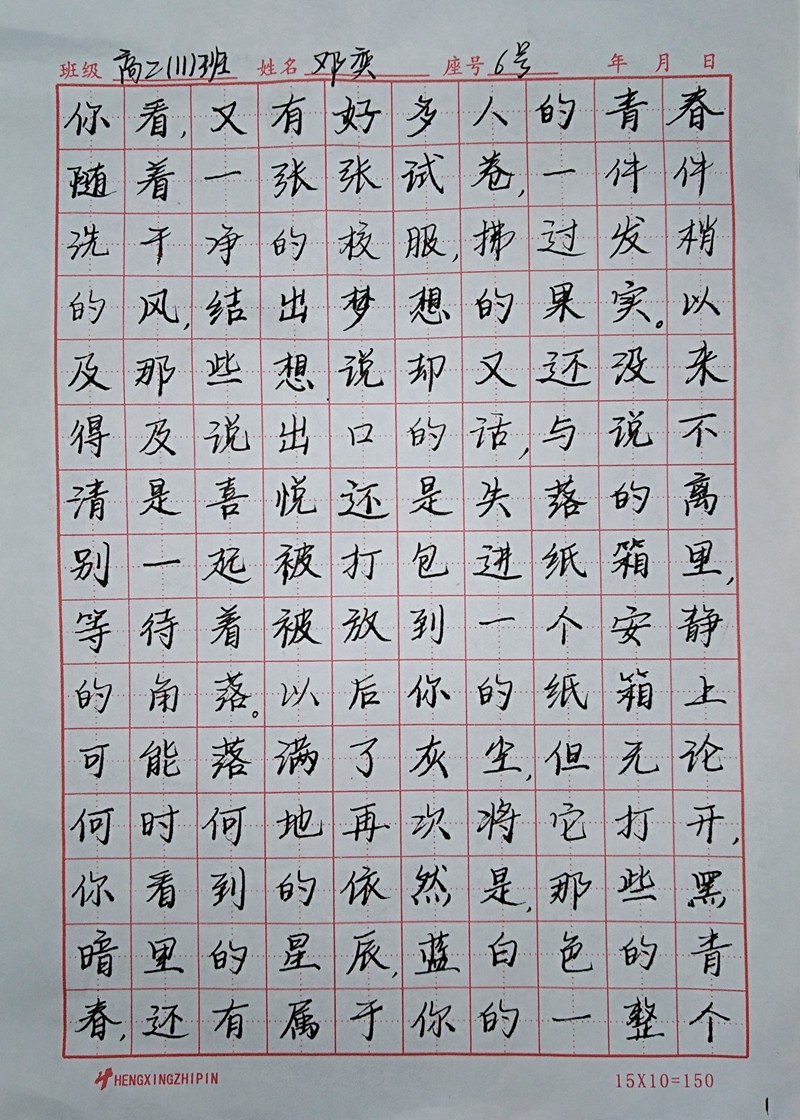 班级 高二(11)班 姓名 邓奕 座号 6号 年 月 日
你看,又有好多人的青春
随着一张张试卷,一件件
洗干净的校服,拂过发梢
的风,结出梦想的果实。以
及那些想说却又还没来
得及说出口的话,与说不
清是喜悦还是失落的离
别一起被打包进纸箱里,
等待着被放到一个安静
的角落。以后你的纸箱上
可能落满了灰尘,但无论
何时何地再次将它打开,
你看到的依然是,那些黑
暗里的星辰,蓝白色的青
春,还有属于你的一整个
HENGXINGZHIPIN 15X10=150
1